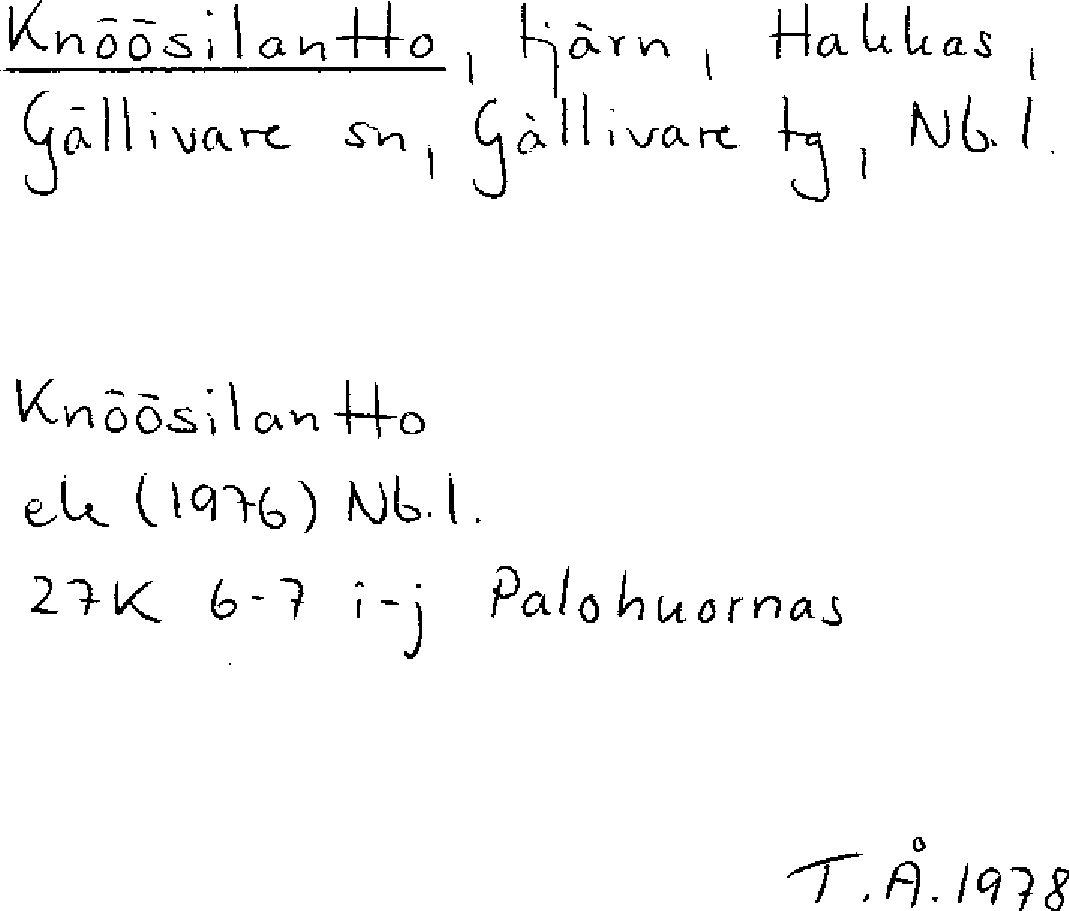 Knöösilantto, tjärn, Hakkas,
Gällivare sn, Gällivare tg, Nb.l.
Knöösilantto
ek (1976) Nb.l.
27K 6-7 i-j Palohuornas
T.Å.1978